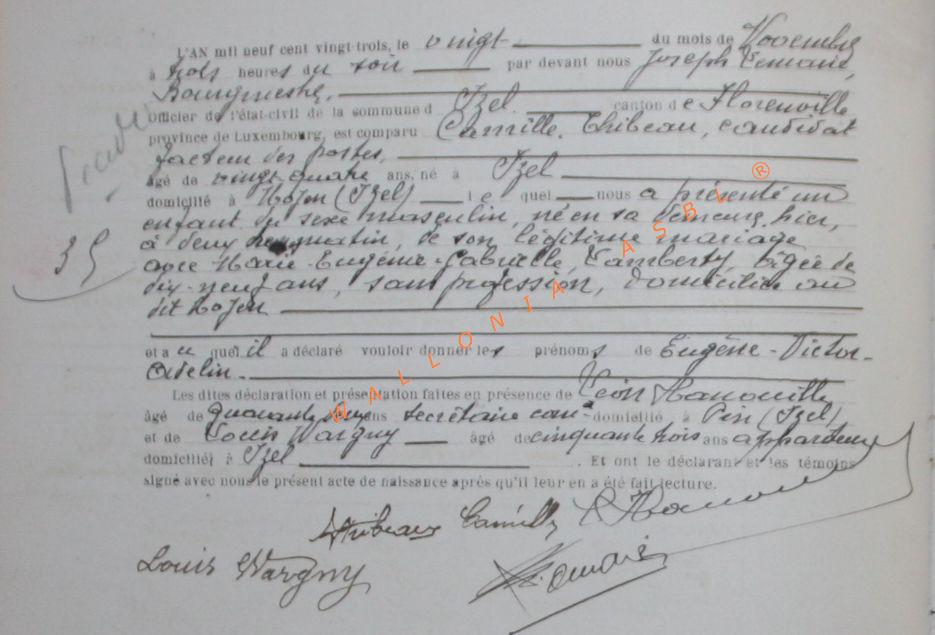 L'AN mil neuf cent vingt-trois, le vingt du mois de Novembre
à trois heures du soir par devant nous Joseph Lemaire,
Bourgmestre,
Officier de l'état-civil de la commune d Izel canton de Florenville
province de Luxembourg, est comparu Camille Thibeau, candidat
facteur des postes,
âgé de vingt quatre ans, né à Izel
domicilié à Moyen (Izel) le quel nous a présenté un
enfant du sexe masculin, né en sa demeure, hier,
à deux du matin, de son légitime mariage
avec Marie-Eugénie-Gabrielle, Lamberty, âgée de
dix-neuf ans, sans profession, domiciliée au
dit Moyen
35
et au quel il a déclaré vouloir donner les prénoms de Eugène-Victor-
Adelin.
Les dites déclaration et présentation faites en présence de Léon Hanouille
âgé de quarante ans secrétaire com¹ domicilié à Pin (Izel)
et de Louis Wargny âgé de cinquante trois ans appariteur
domiciliés à Izel. Et ont le déclarant et les témoins
signé avec nous le présent acte de naissance après qu'il leur en a été fait lecture.
Thibeau Camille
Louis Wargny
WALLONIA ASBL ®